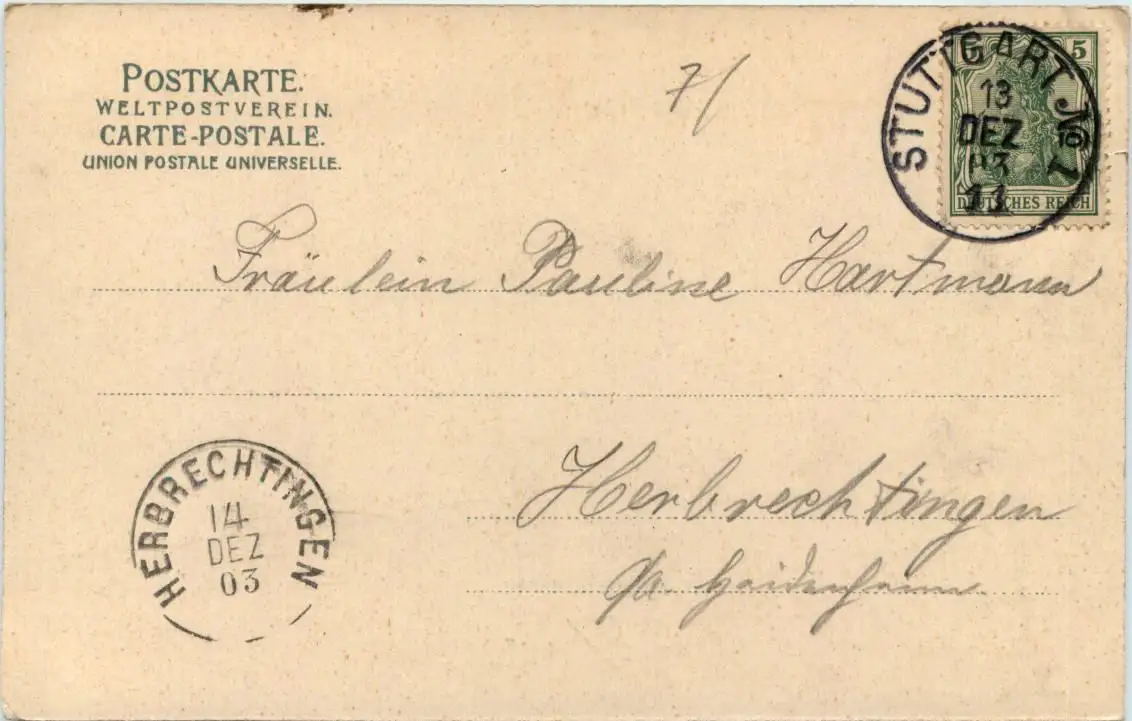 POSTKARTE.
WELTPOSTVEREIN.
CARTE-POSTALE.
UNION POSTALE UNIVERSELLE.
7/
STUTTGART No 1
13
DEZ
03
11
5
DEUTSCHES REICH
Fräulein Pauline Hartmann
Herbrechtingen
O/A. Heidenheim
HERBRECHTINGEN
14
DEZ
03